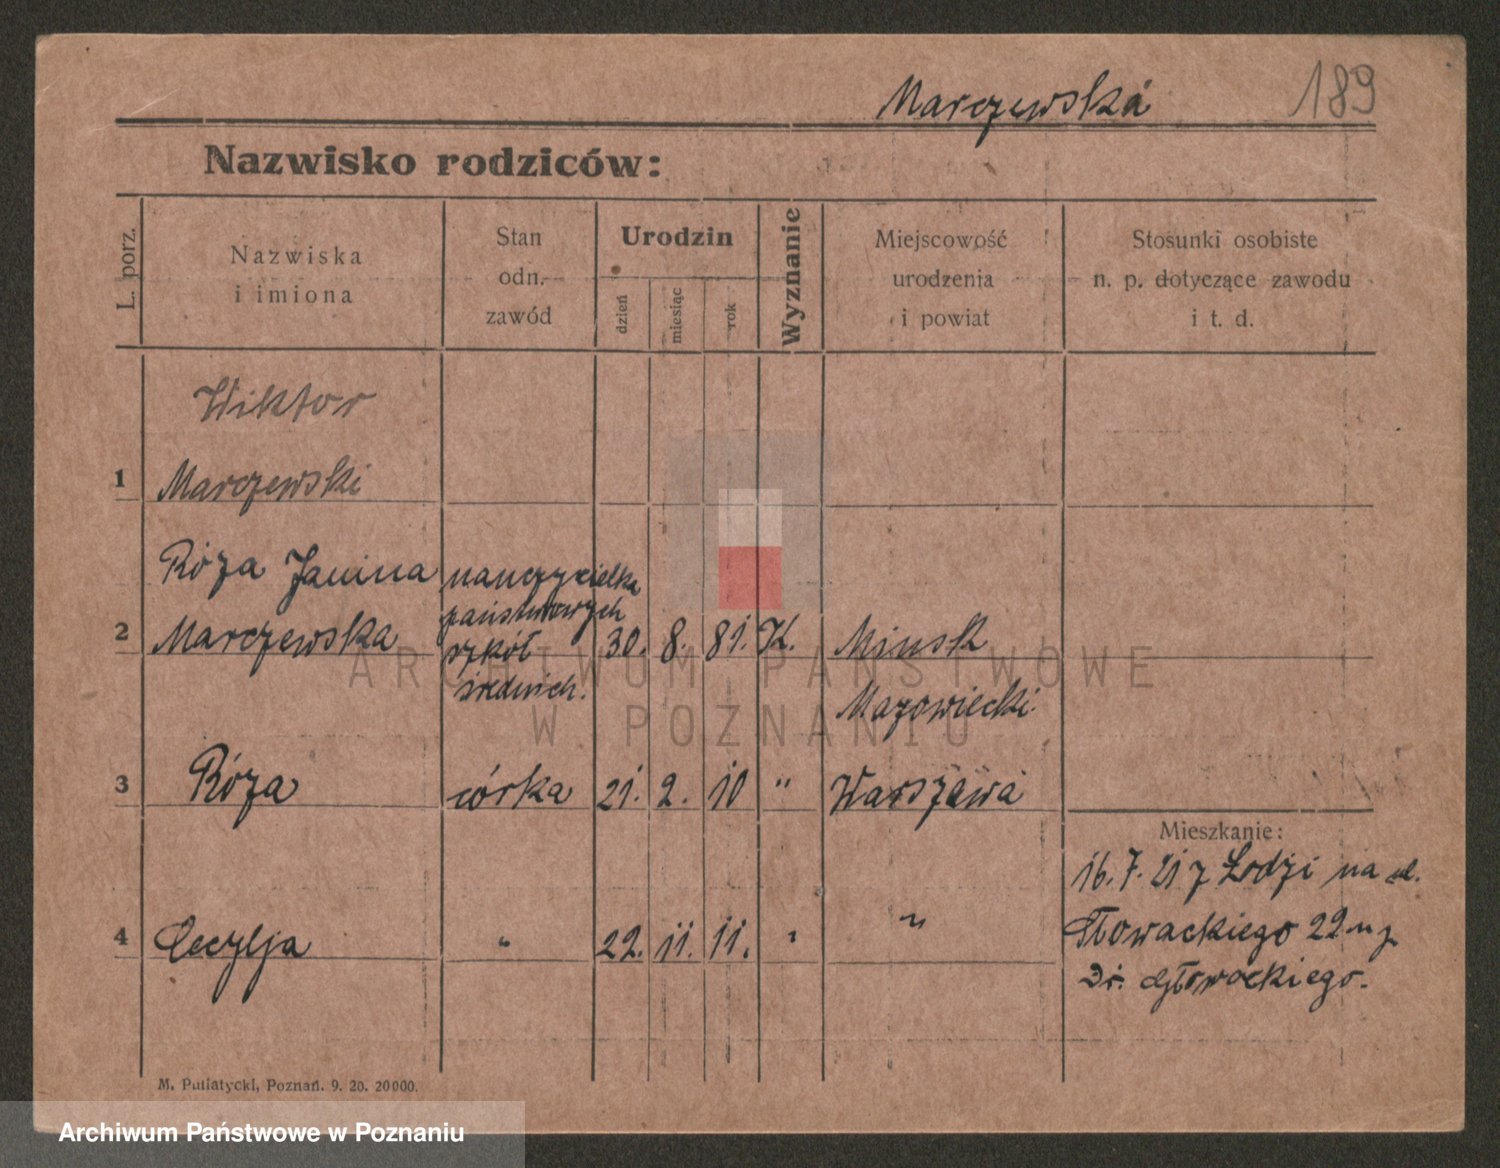 Marczewska
189
Nazwisko rodziców:
L. porz.
Nazwiska
i imiona
Stan
odn.
zawód
Urodzin
dzień
miesiąc
rok
Wyznanie
Miejscowość
urodzenia
i powiat
Stosunki osobiste
n. p. dotyczące zawodu
i t. d.
Wiktor
1 Marczewski
Róża Janina
nauczycielka
państwowych
2 Marczewska szkół 30. 8. 81. K. Minsk
średnich.
Mazowiecki
3 Róża córka 21. 2. 10 " Warszawa
Mieszkanie:
16.7.21 z Łodzi na ul.
4 Cecylja " 22. 11. 11. " "
Słowackiego 22
Dr. Głowackiego.
M. Putiatycki, Poznań. 9. 20. 20000.
ARCHIWUM PAŃSTWOWE
W POZNANIU
Archiwum Państwowe w Poznaniu